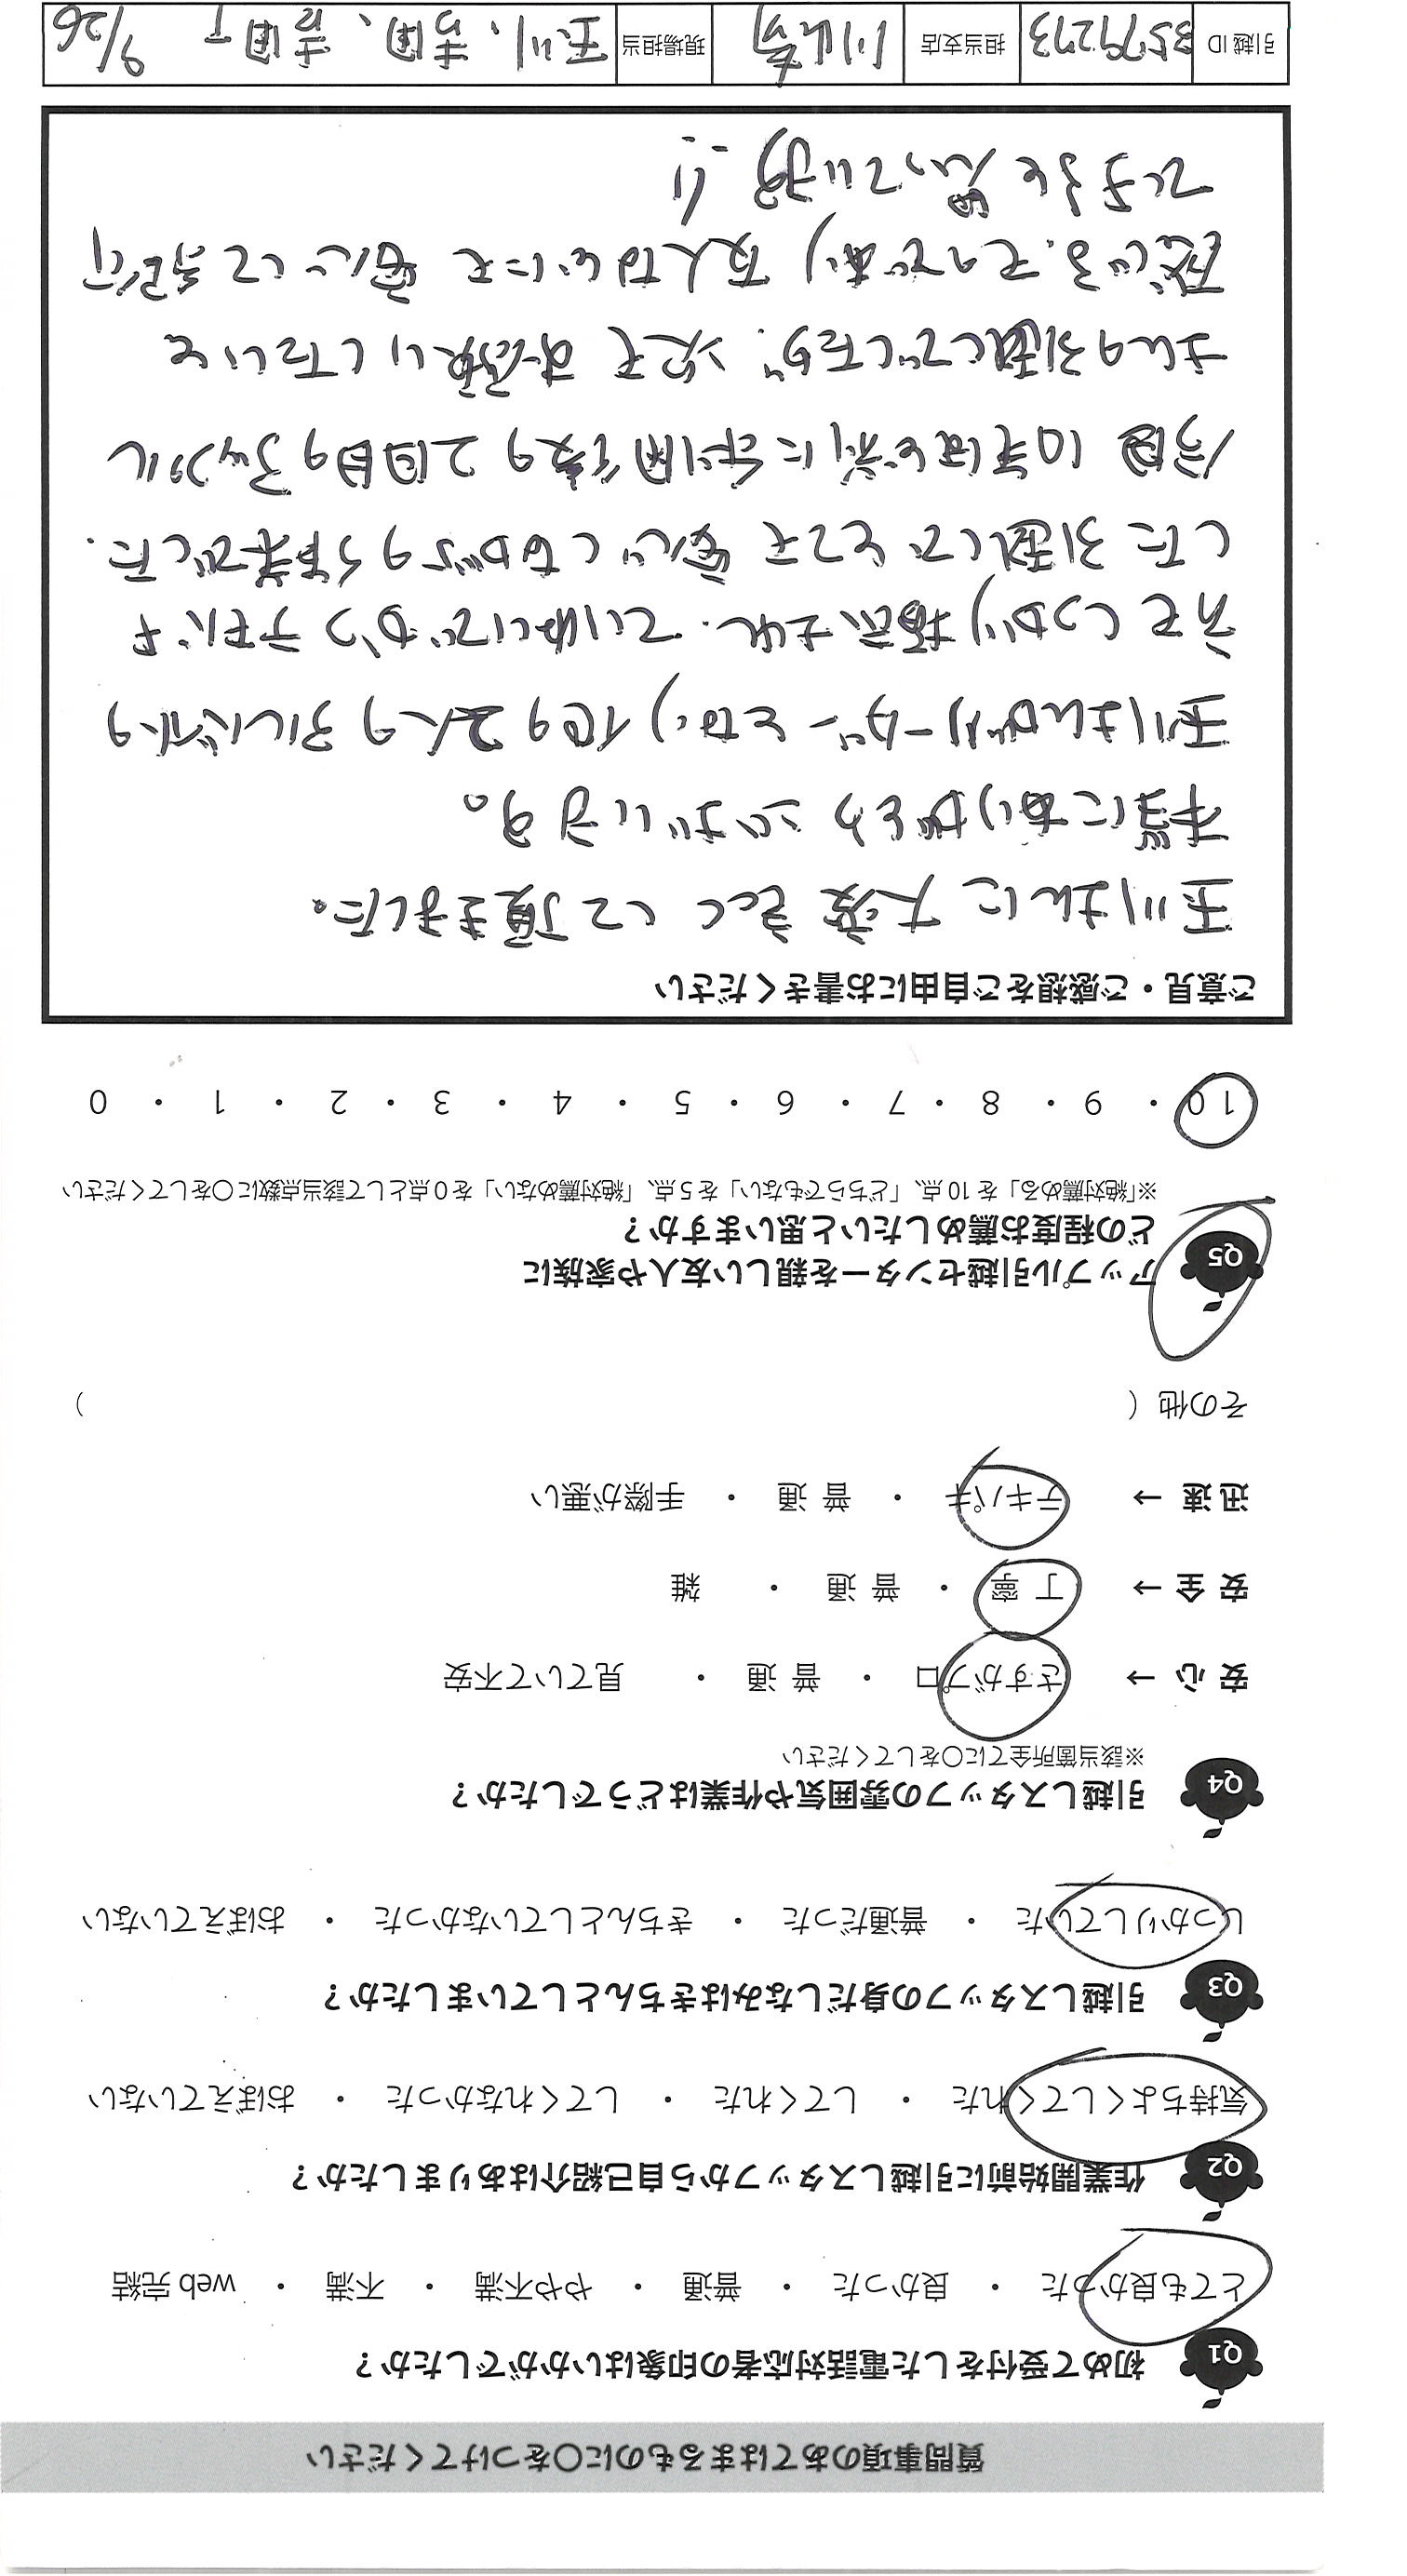 質問事項のあてはまるものに○をつけてください
Q1 初めて受付をした電話対応者の印象はいかがでしたか？
とても良かった ・ 良かった ・ 普通 ・ やや不満 ・ 不満 ・ web 完結
Q2 作業開始前に引越しスタッフから自己紹介はありましたか？
気持ちよくしてくれた ・ してくれた ・ してくれなかった ・ おぼえていない
Q3 引越しスタッフの身だしなみはきちんとしていましたか？
しっかりしていた ・ 普通だった ・ きちんとしていなかった ・ おぼえていない
Q4 引越しスタッフの雰囲気や作業はどうでしたか？
※該当箇所全てに○をしてください
安 心 → さすがプロ ・ 普 通 ・ 見ていて不安
安 全 → 丁 寧 ・ 普 通 ・ 雑
迅 速 → テキパキ ・ 普 通 ・ 手際が悪い
その他（ ）
Q5 アップル引越センターを親しい友人や家族に
どの程度お薦めしたいと思いますか？
※「絶対薦める」を 10 点、「どちらでもない」を 5 点、「絶対薦めない」を 0 点として該当点数に○をしてください
10 ・ 9 ・ 8 ・ 7 ・ 6 ・ 5 ・ 4 ・ 3 ・ 2 ・ 1 ・ 0
ご意見・ご感想をご自由にお書きください
玉川さんに 大変 良くして頂きました。
本当にありがとうございます。
玉川さんがリーダーとなり 他の2人のアルバイトの
方をしっかり指示され、ていねいで、かつテキパキ
した引越しで とても 安心しながらの作業でした.
今回 10年ほど前に利用後の2回目のアップル
さんの引越しでしたが、次もお願いしたいと
感じる、そのであり 友人などにも 安心して紹介
できると思っています!!
引越 ID 35791273 担当支店 川崎 現場担当 玉川、吉岡、吉田 9/26